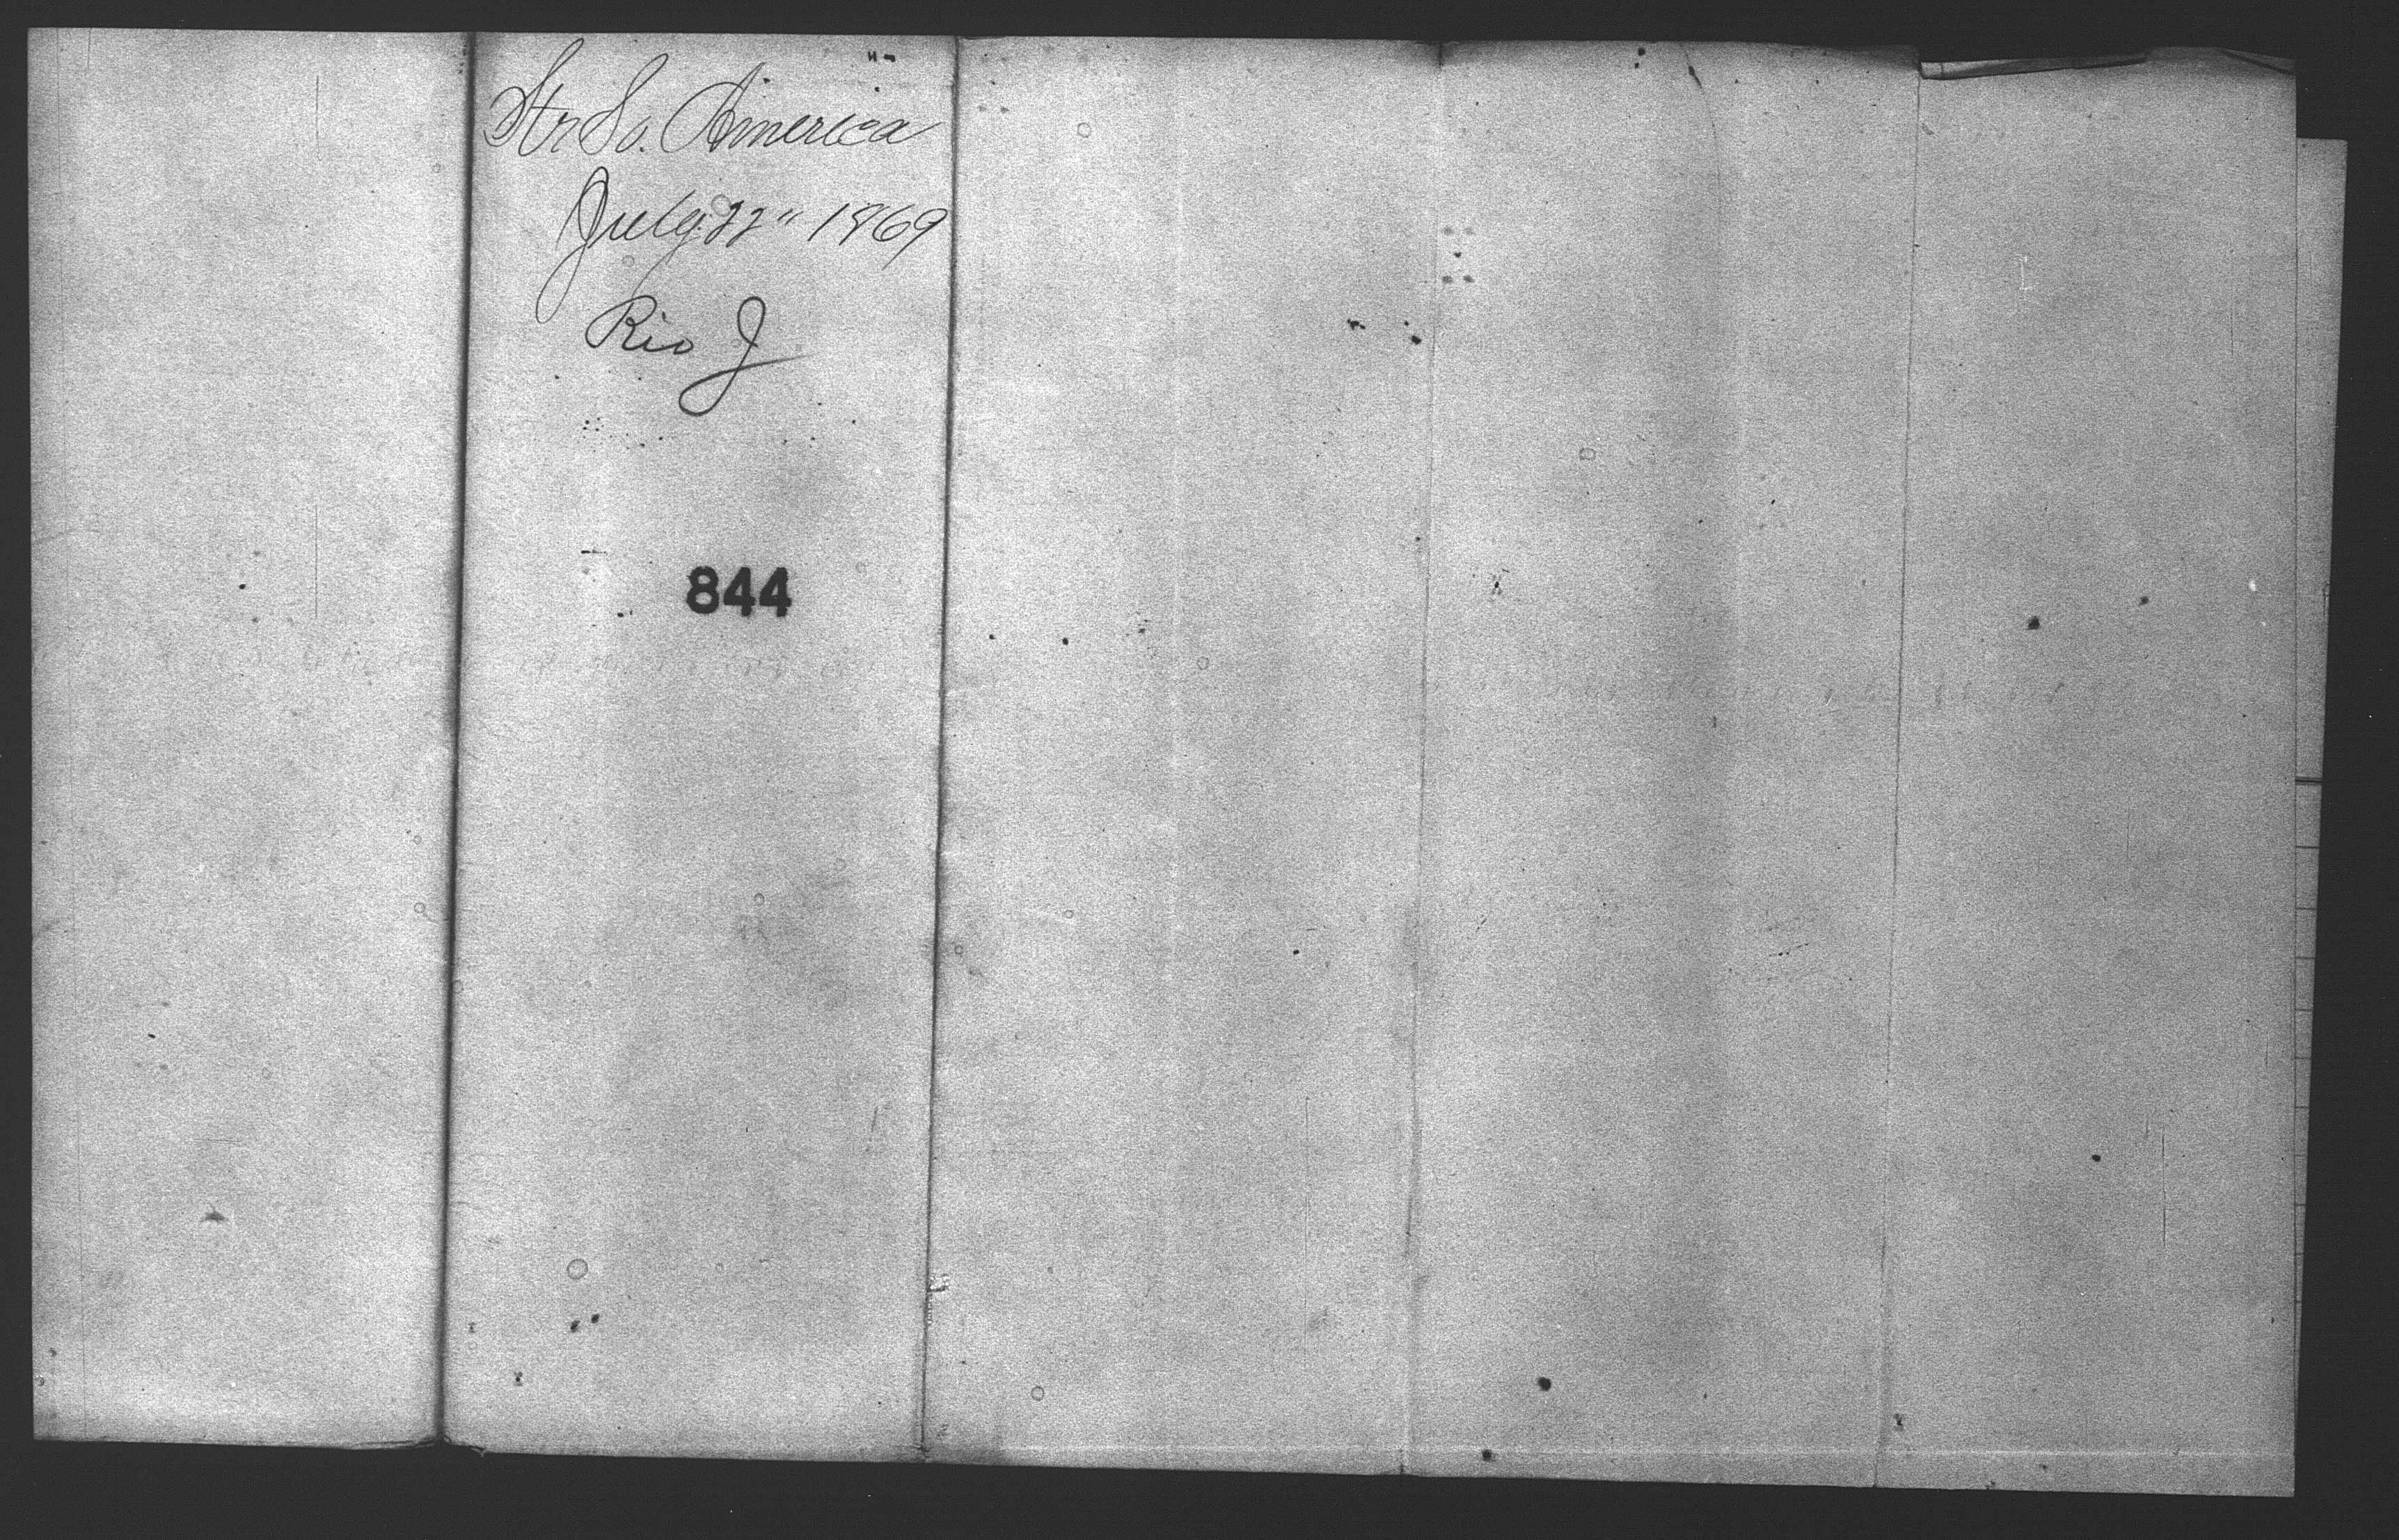 Str So. America
July 22" 1869
Rio J
844